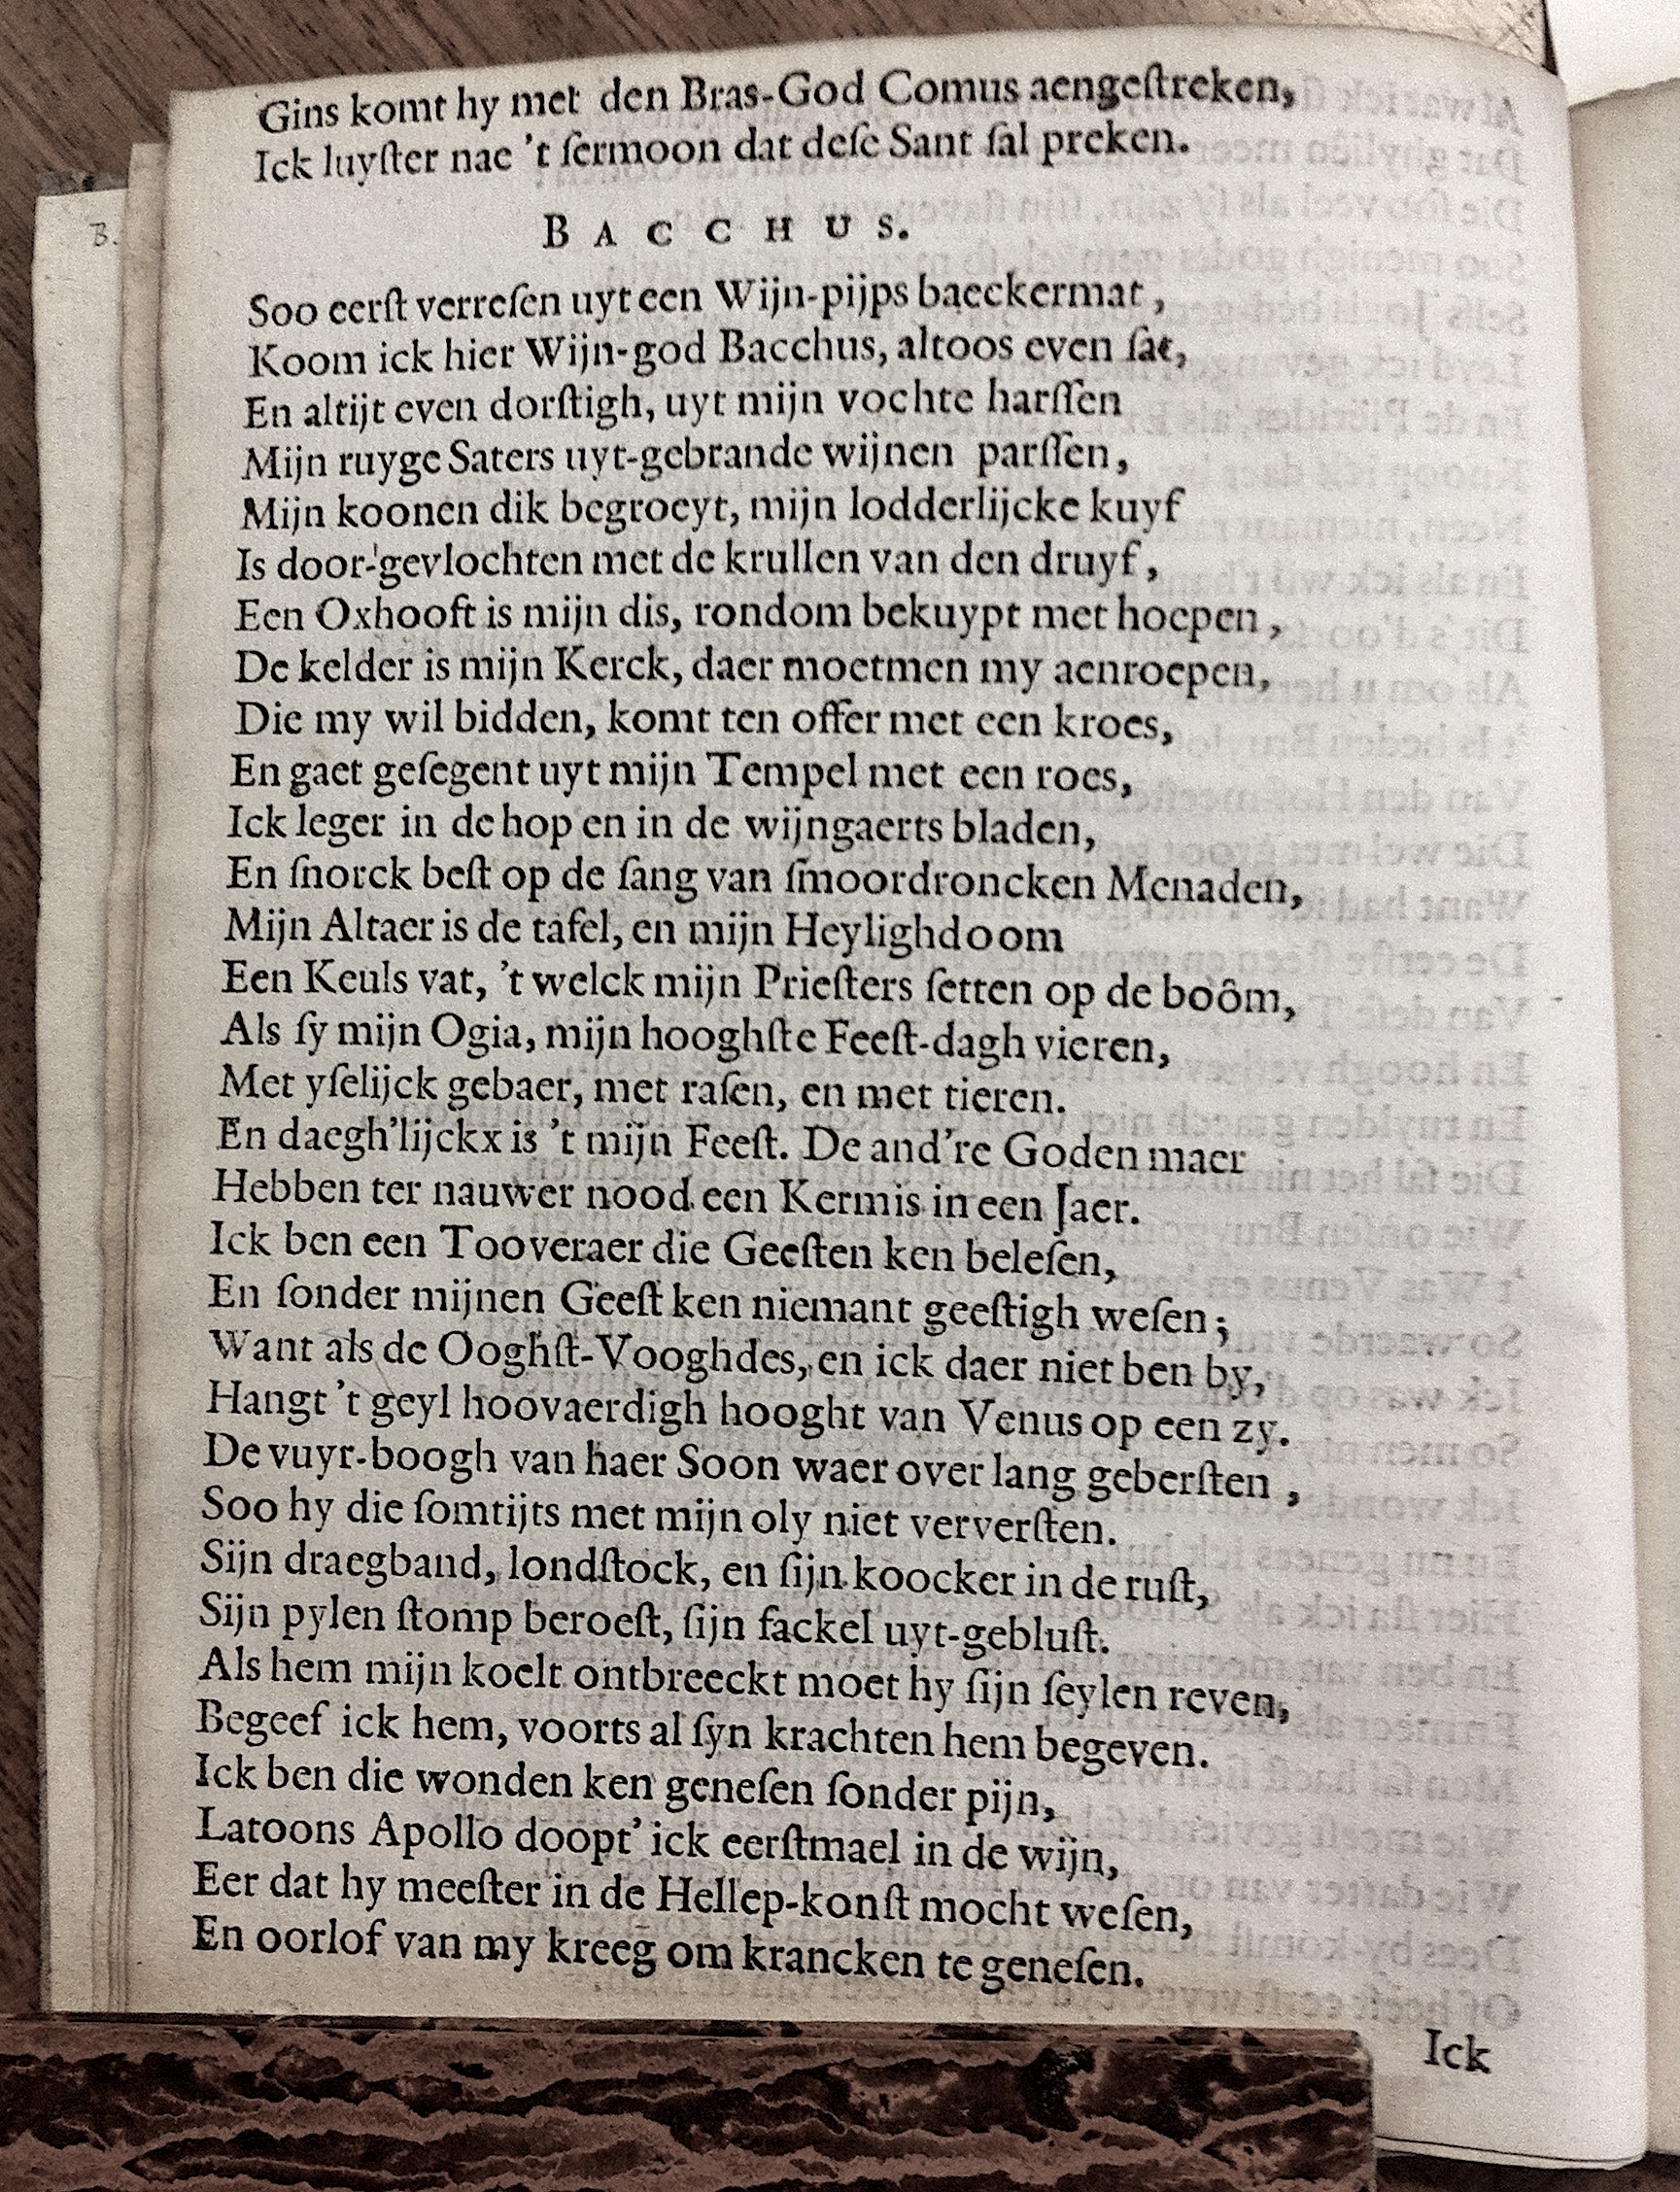 Gins komt hy met den Bras-God Comus aengeſtreken,
Ick luyſter nae 't ſermoon dat deſe Sant ſal preken.
BACCHUS.
Soo eerſt verreſen uyt een Wijn-pijps baeckermat,
Koom ick hier Wijn-god Bacchus, altoos even ſat,
En altijt even dorſtigh, uyt mijn vochte harſſen
Mijn ruyge Saters uyt-gebrande wijnen parſſen,
Mijn koonen dik begroeyt, mijn lodderlijcke kuyf
Is door-gevlochten met de krullen van den druyf,
Een Oxhooft is mijn dis, rondom bekuypt met hoepen,
De kelder is mijn Kerck, daer moetmen my aenroepen,
Die my wil bidden, komt ten offer met een kroes,
En gaet geſegent uyt mijn Tempel met een roes,
Ick leger in de hop en in de wijngaerts bladen,
En ſnorck beſt op de ſang van ſmoordroncken Menaden,
Mijn Altaer is de tafel, en mijn Heylighdoom
Een Keuls vat, 't welck mijn Prieſters ſetten op de boôm,
Als ſy mijn Ogia, mijn hooghſte Feeſt-dagh vieren,
Met yſelijck gebaer, met raſen, en met tieren.
En daegh'lijckx is 't mijn Feeſt. De and're Goden maer
Hebben ter nauwer nood een Kermis in een Jaer.
Ick ben een Tooveraer die Geeſten ken beleſen,
En ſonder mijnen Geeſt ken niemant geeſtigh weſen;
Want als de Ooghſt-Vooghdes, en ick daer niet ben by,
Hangt 't geyl hoovaerdigh hooght van Venus op een zy.
De vuyr-boogh van haer Soon waer over lang geberſten,
Soo hy die ſomtijts met mijn oly niet ververſten.
Sijn draegband, londſtock, en ſijn koocker in de ruſt,
Sijn pylen ſtomp beroeſt, ſijn fackel uyt-gebluſt.
Als hem mijn koelt ontbreeckt moet hy ſijn ſeylen reven,
Begeef ick hem, voorts al ſyn krachten hem begeven.
Ick ben die wonden ken geneſen ſonder pijn,
Latoons Apollo doopt' ick eerſtmael in de wijn,
Eer dat hy meeſter in de Hellep-konſt mocht weſen,
En oorlof van my kreeg om krancken te geneſen.
Ick
B.